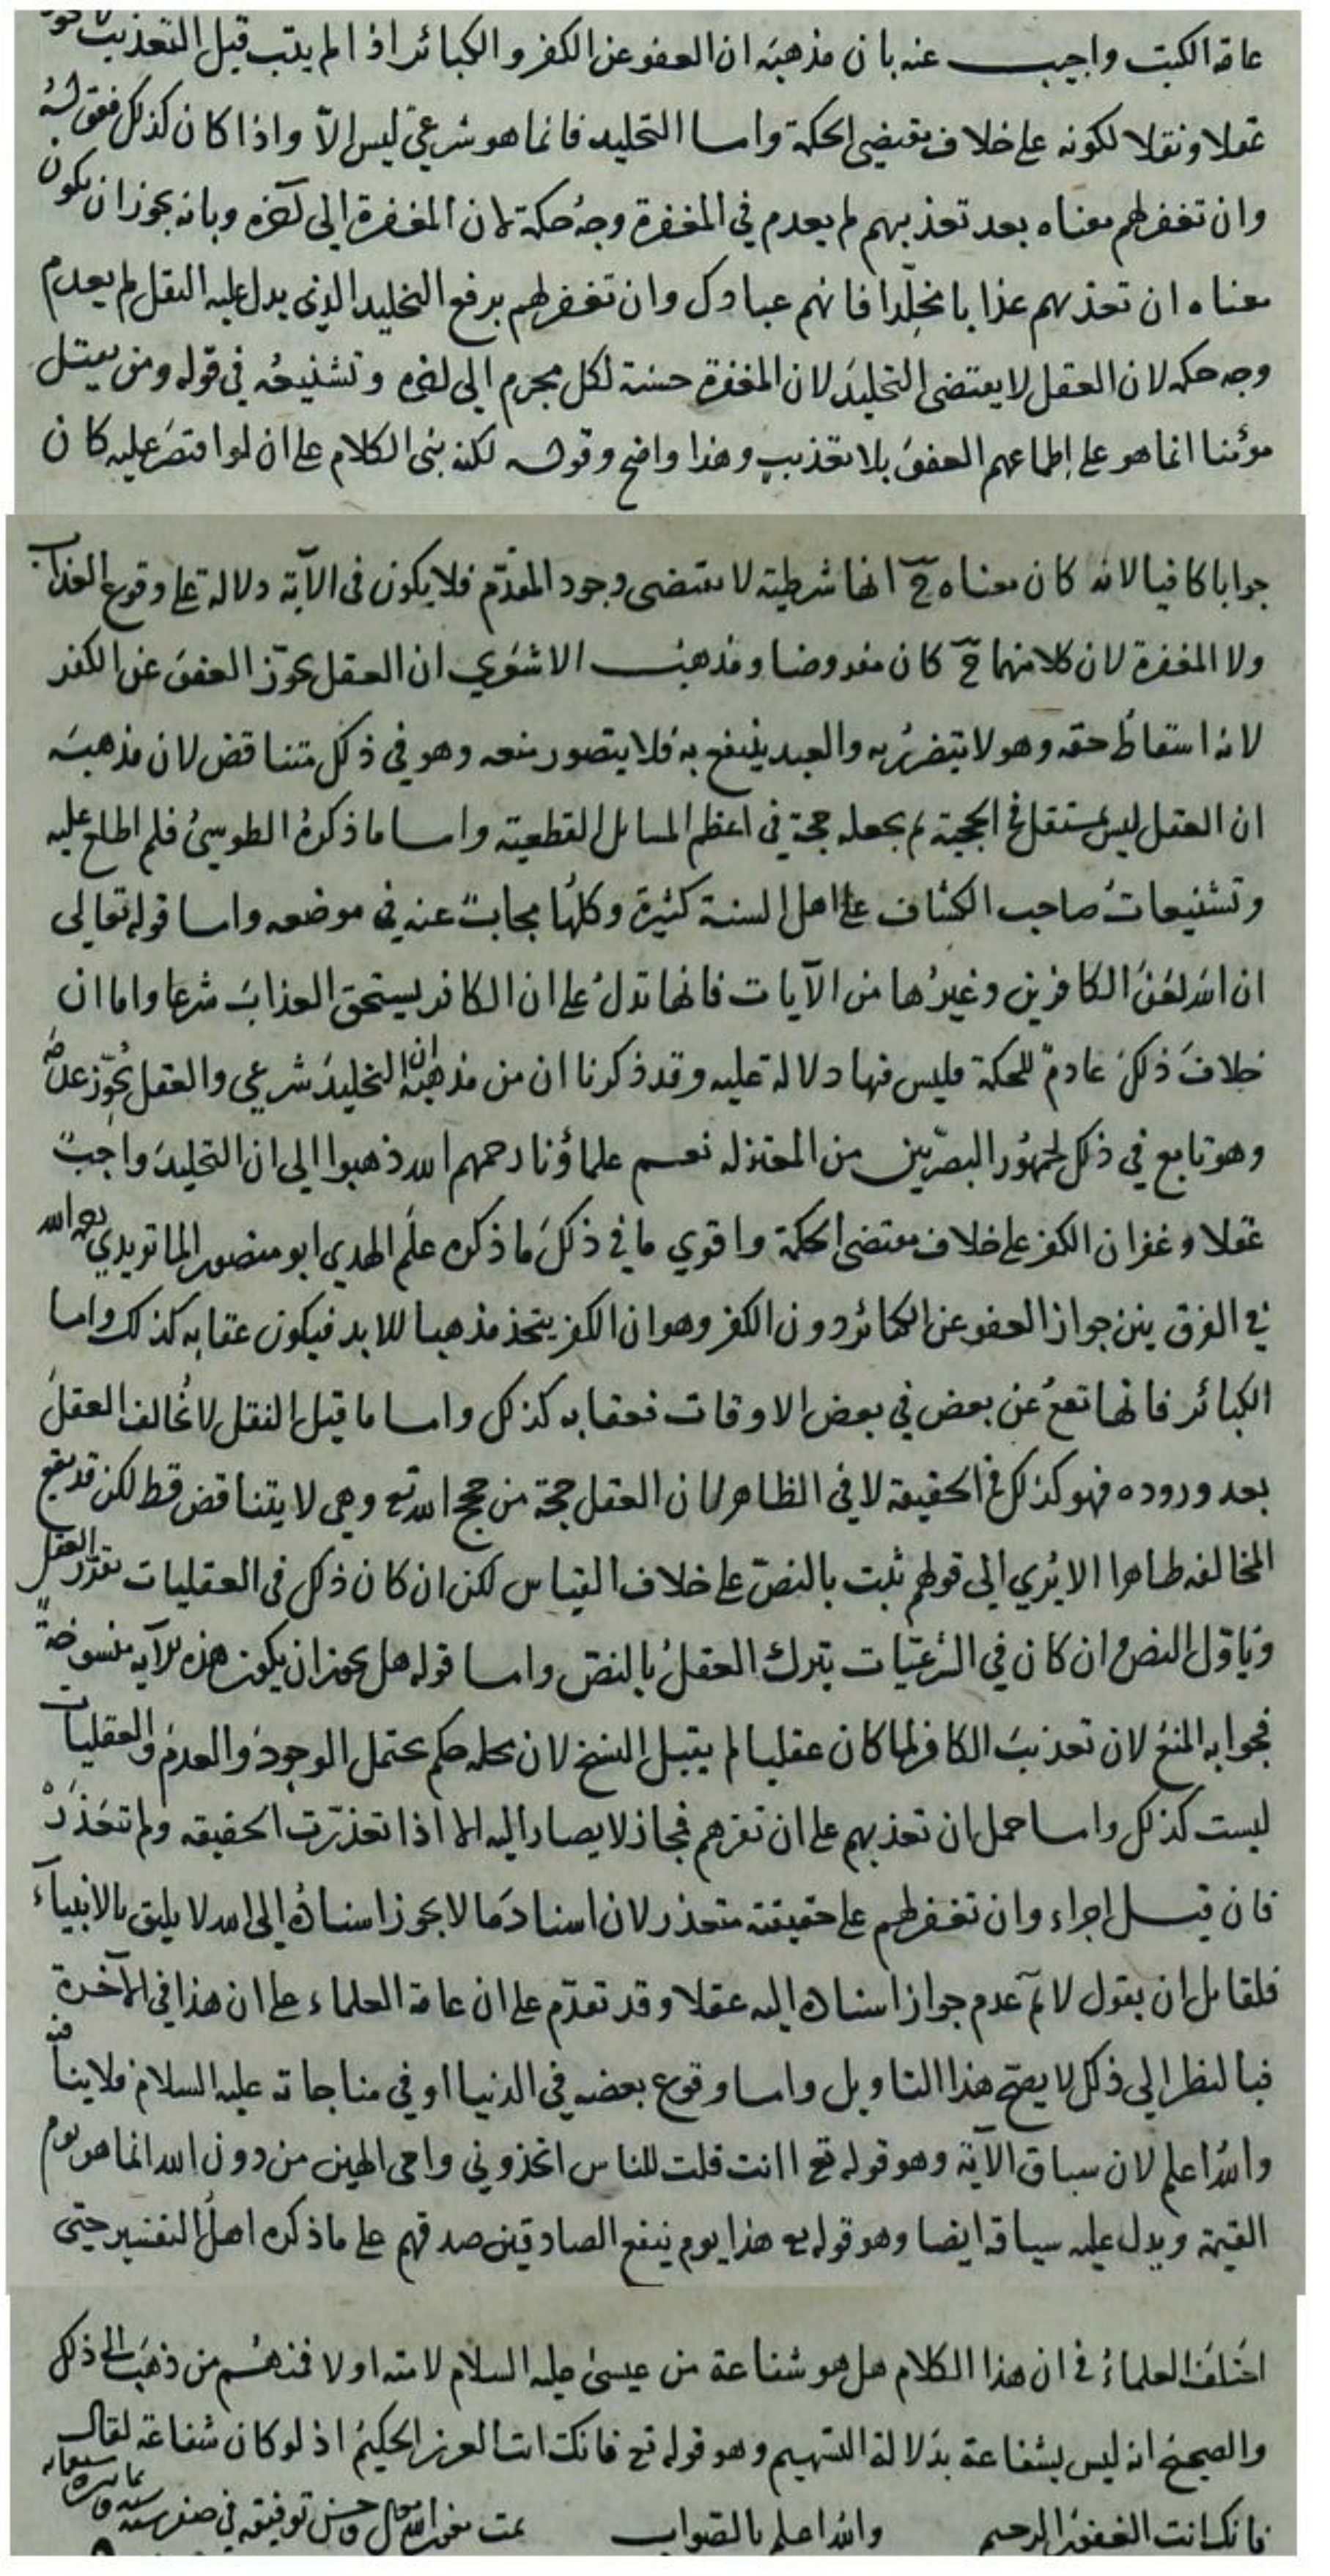 عامة الكتب واجيب عنه بان مذهبه ان العفو عن الكفر والكبائر اذا لم يتب قبل التعذيب
عقلا ونقلا لكونه على خلاف مقتضى الحكمة واما التخليد فانما هو شرعي ليس الا واذا كان كذلك فقوله
وان تغفر لهم معناه بعد تعذيبهم لم يعدم في المغفرة وجه حكمة لان المغفرة الى آخره وبانه يجوز ان يكون
معناه ان تعذبهم عذابا مخلدا فانهم عبادك وان تغفر لهم برفع التخليد الذي يدل عليه النقل لم يعدم
وجه حكمه لان العقل لا يقتضي التخليدَ لان المغفرة حسنة لكل مجرم الى اخره وتشنيعه في قوله ومن
انما هو على إطماعهم العفوَ بلا تعذيبٍ وهذا واضح وقوله لكنه بنى الكلام على ان لو اقتصَر عليه كان
جوابا كافيا لانه كان معناه ح انها شرطية لا تقتضي وجود المقدّم فلا يكون في الآية دلالة على وقوع العذاب
ولا المغفرة لان كلا منهما ح كان مفروضا ومذهب الاشعري ان العقل يجوّز العفوَ عن الكفر
لانه اسقاطُ حقه وهو لا يتضرر به والعبد ينتفع به فلا يتصور منعه وهو في ذلك متناقض لان مذهبَه
ان العقل ليس بمستقل في الحجية ثم يجعله حجة في اعظم المسائل القطعية واما ما ذكره الطوسيُ فلم اطلع عليه
وتشنيعاتُ صاحب الكشاف على اهل السنة كثيرة وكلهُا مجابٌ عنه في موضعه واما قوله تعالى
ان الله لعنَ الكافرين وغيرُها من الآيات فانها تدلُ على ان الكافر يستحق العذابَ شرعا واما ان
خلافَ ذلك عادمٌ للحكمة فليس فيها دلالة عليه وقد ذكرنا ان من مذهبه ان التخليدَ شرعي والعقل يُجوّز عدمه
وهو تابع في ذلك لجمهُور البصرّيين من المعتزله نعم علماؤنا رحمهم الله ذهبوا الى ان التخليدَ واجبٌ
عقلا وغفران الكفر على خلاف مقتضى الحكمة واقوى ما في ذلكَ ما ذكره علَم الهدى ابو منصور الماتريدي رحمه الله
في الفرق بين جواز العفو عن الكبائر دون الكفر وهو ان الكفر يتخذ مذهبا للابد فيكون عقابه كذلك واما
الكبائر فانها تقعُ عن بعض في بعض الاوقات فعقابه كذلك واما ما قيل النقل لا يُخالف العقلَ
بعد وروده فهو كذلك في الحقيقة لا في الظاهر لان العقل حجة من حجج الله تع وهي لا يتناقض قط لكن قد يقع
المخالفه ظاهرا الا يُرى الى قولهم ثبت بالنصّ على خلاف القياس لكن ان كان ذلك في العقليات تقرّر العقل
وياوّل النص وان كان في الشرعيّات يترك العقلُ بالنصّ واما قوله هل يجوز ان يكون هذه الآيه منسوخةً
فجوابه المنعُ لان تعذيبَ الكافر لما كان عقليا لم يقبل النسخ لان محله حكم يحتمل الوجودَ والعدمَ والعقليات
ليست كذلك واما حمل ان تعذبهم على ان تقرهم فمجاز لا يصار اليه الا اذا تعذرّت الحقيقه ولم تتعَذَرْ
فان قيل اجراء وان تغفر لهم على حقيقته متعذر لان اسنادَ ما لا يجوز اسنادُه الى الله لا يليق بالانبياء
فلقائل ان يقول لا ثم عدم جواز اسناده اليه عقلا وقد تقدّم على ان عامة العلماء على ان هذا في الآخرة
فبالنظر الى ذلك لا يصح هذا التاويل واما وقوع بعضه في الدنيا او في مناجاته عليه السلام فلا ينافيه
واللهُ اعلم لان سباق الآية وهو قوله تع اانت قلت للناس اتخذوني وامي الهين من دون الله انما هو يوم
القيمة ويدل عليه سياقه ايضا وهو قوله تع هذا يوم ينفع الصادقين صدقهم على ما ذكره اهلُ التفسير حتى
اختلفَ العلماءُ في ان هذا الكلام هل هو شفاعة من عيسىَ عليه السلام لامته اولا فمنهُم من ذهَبَ الى ذلك
والصحيح انه ليس بشفاعة بدلالة التسهيم وهو قوله تع فانك انت العزيز الحكيمُ اذ لو كان شفاعة لقال
فانك انت الغفورُ الرحيم والله اعلم بالصواب تمت بعون الله وحسن توفيقه في صفر سنة